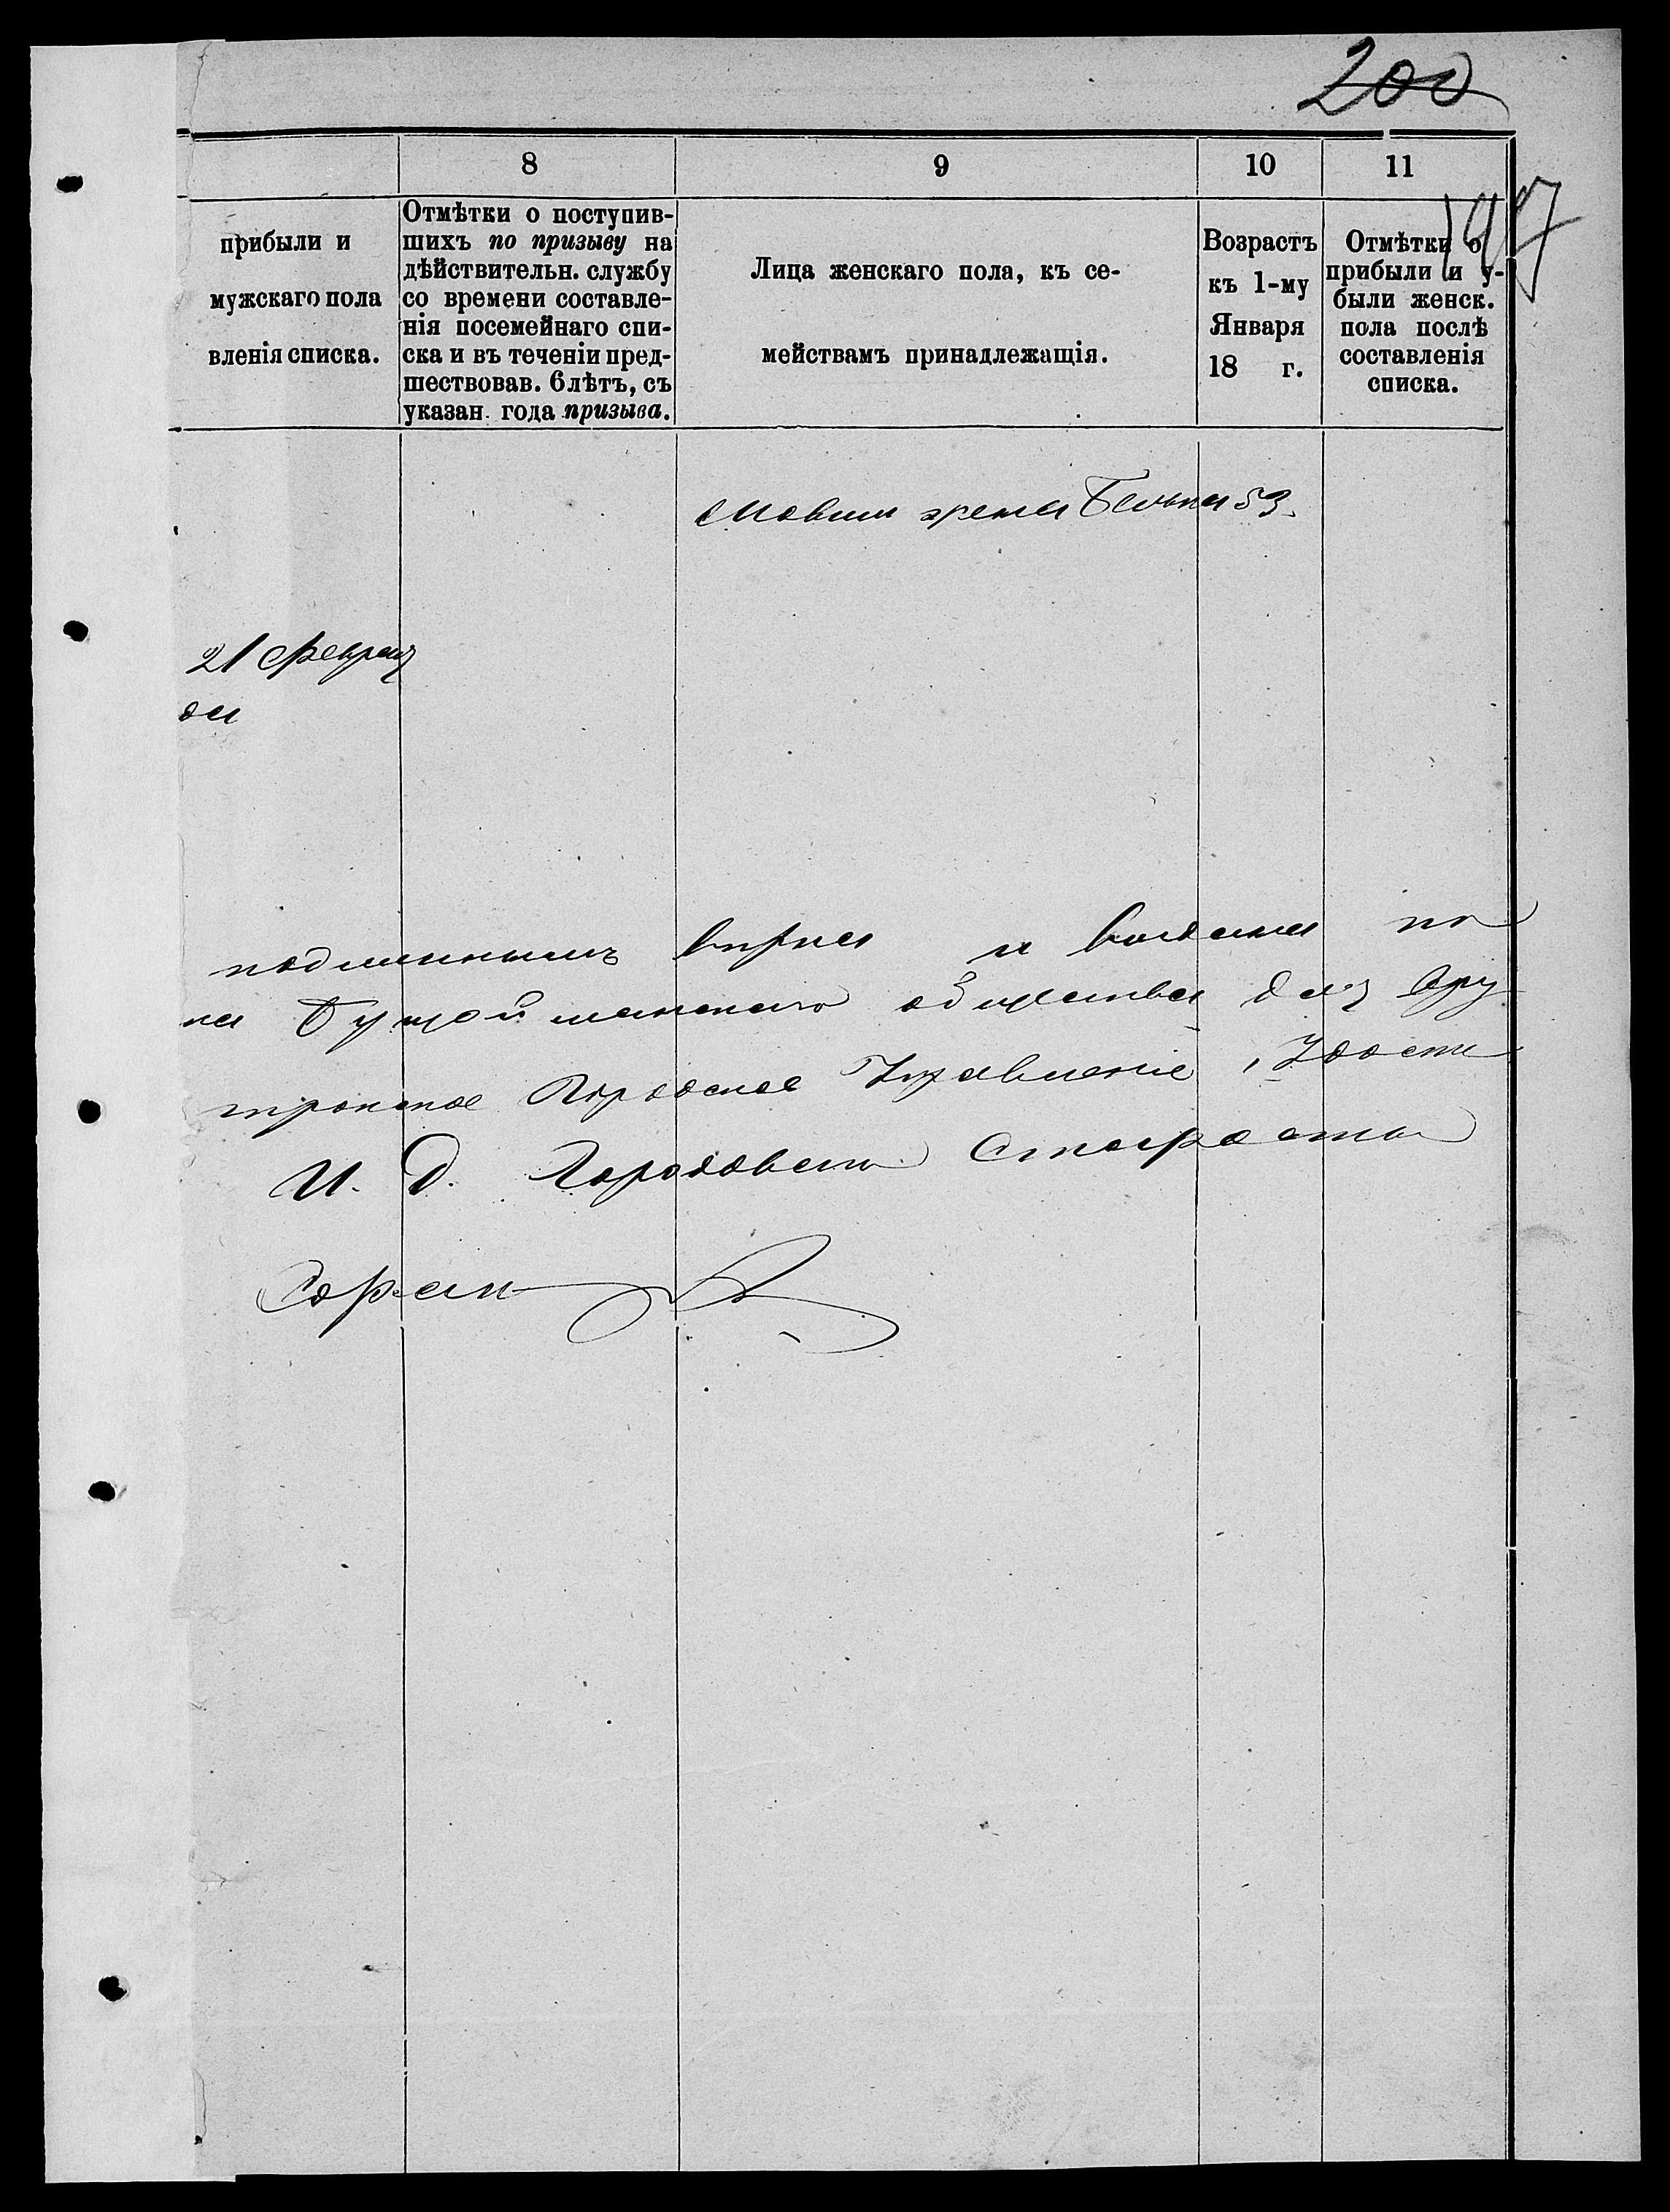 200
197
8 9 10 11
прибыли и
мужскаго пола
вленія списка.
Отмѣтки о поступив-
шихъ по призыву на
дѣйствительн. службу
со времени составле-
нія посемейнаго спи-
ска и въ теченіи пред-
шествовав. 6 лѣтъ, съ
указан. года призыва.
Лица женскаго пола, къ се-
мействамъ принадлежащія.
Возрастъ
къ 1-му
Января
18 г.
Отмѣтки о
прибыли и у-
были женск.
пола послѣ
составленія
списка.
жена 53.
21 Февраля
да
подлиннымъ вѣрна и выдана
общества для
Городское Управленіе
И. д. Городоваго Старосты